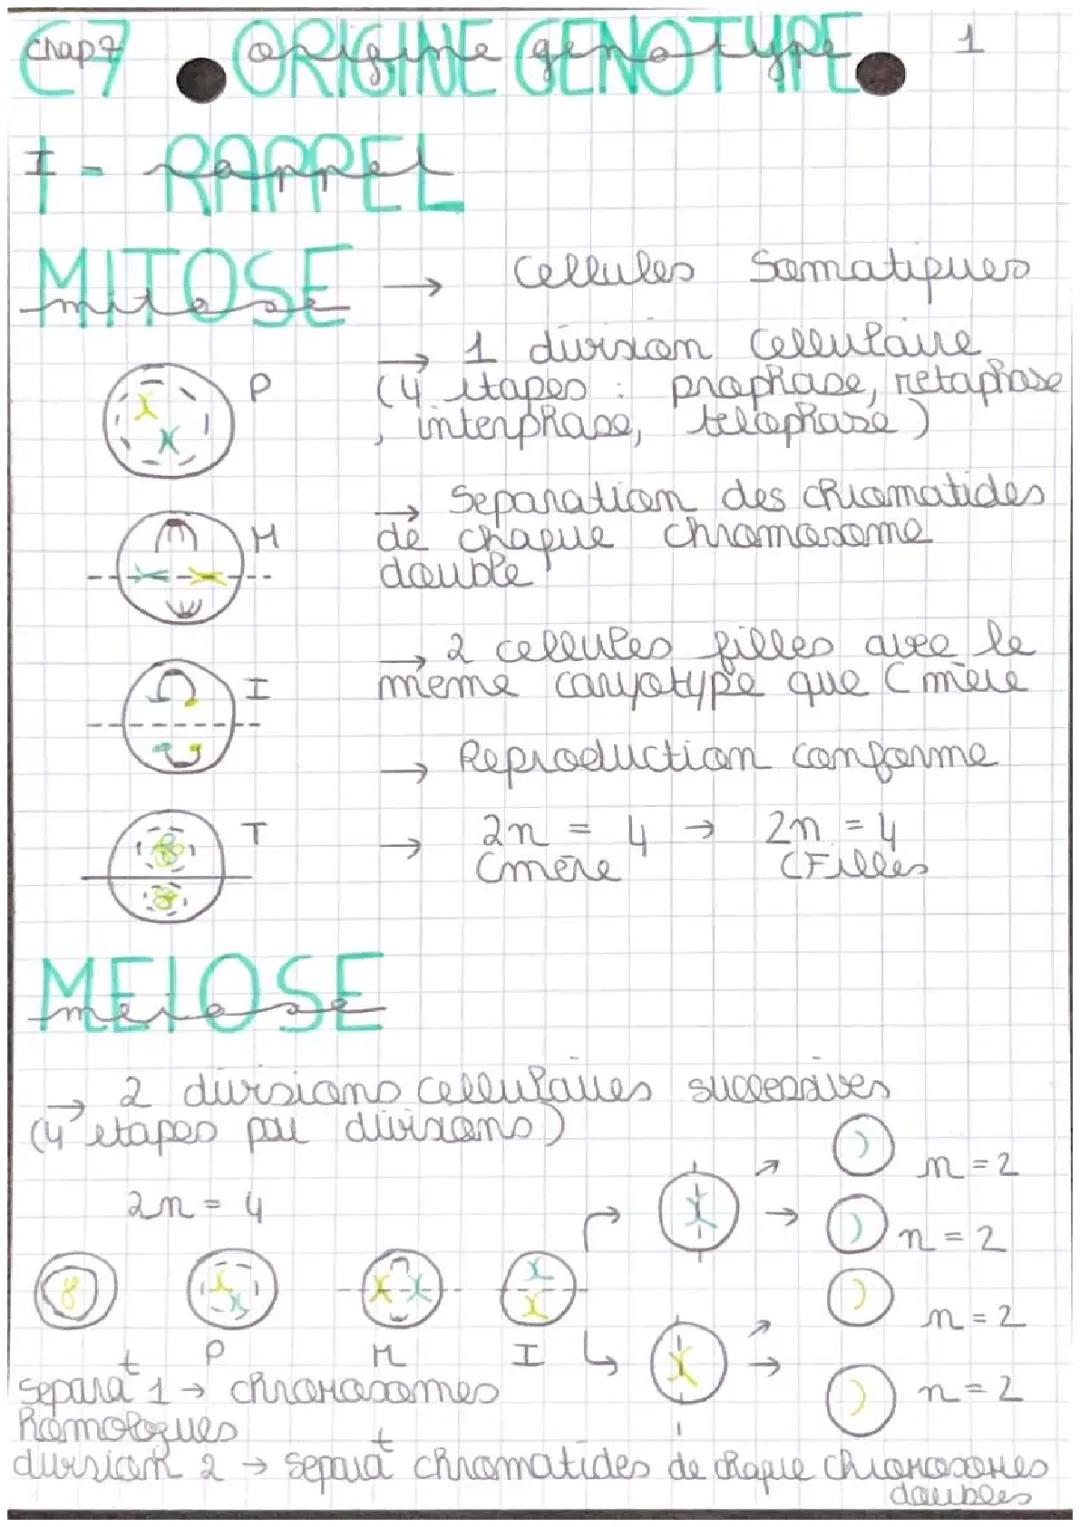 C7 • ORIGINE GENOTYPE • 1
chap 7 origine genotype
I - RAPPEL
rappel
MITOSE → cellules Somatiques
mitose
→ 1 division cellulaire
(4 étapes : prophase, métaphase
, interphase, telophase)
P
→ Separation des chromatides
de chaque chromosome
double
M
→ 2 cellules filles avec le
même caryotype que C mère
I
→ Reproduction conforme
T
→ 2n = 4 → 2n = 4
Cmère CFilles
MEIOSE
meiose
→ 2 divisions cellulaires successives
(4 etapes par divisions)
2n = 4
n = 2
n = 2
n = 2
n = 2
P M I
separat° 1 → chromosomes
homologues
division 2 → separat° chromatides de chaque chromosomes
doubles